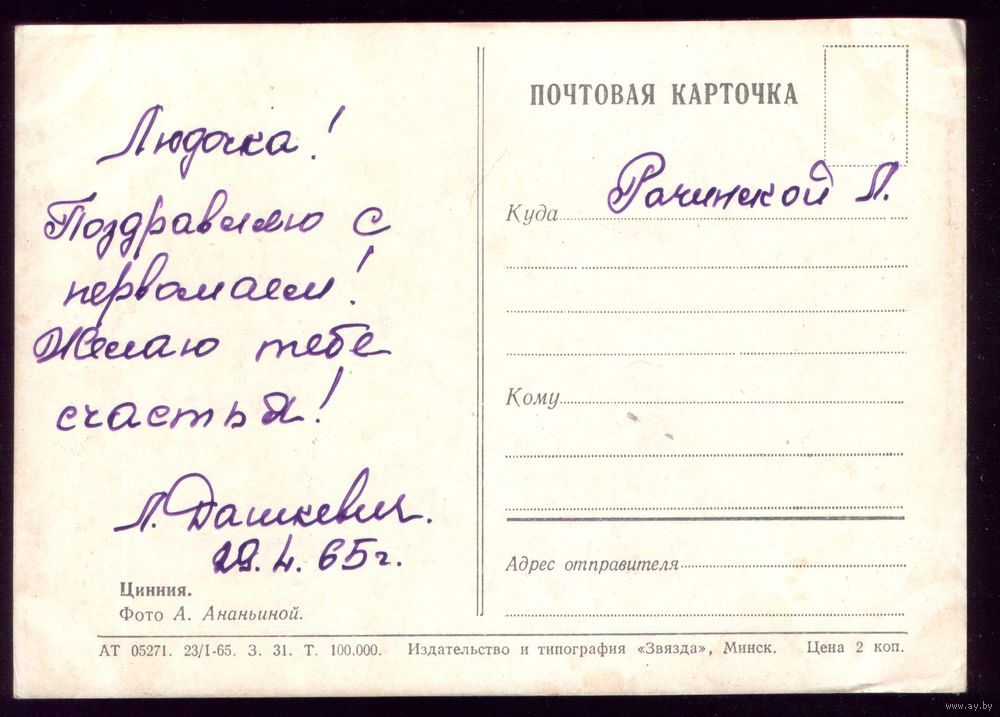 Людочка!
Поздравляю с
первомаем!
Желаю тебе
счастья!
Л. Дашкевич.
29.4.65г.
Цинния.
Фото А. Ананьиной.
ПОЧТОВАЯ КАРТОЧКА
Куда Рачинской Л.
Кому
Адрес отправителя
АТ 05271. 23/I-65. З. 31. Т. 100.000. Издательство и типография «Звязда», Минск. Цена 2 коп.
www.ay.by